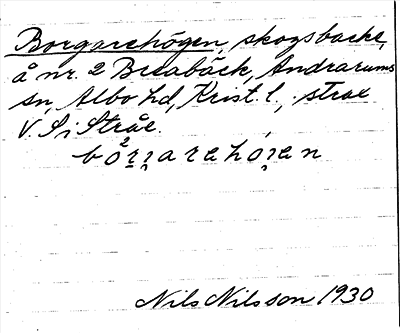 Borgarehögen, skogsbacke,
å nr. 2 Bredabäck, Andrarums
sn, Albo hd, Krist. l., strax
V. S i Stråe.
bo²rgarehögen
Nils Nilsson 1930